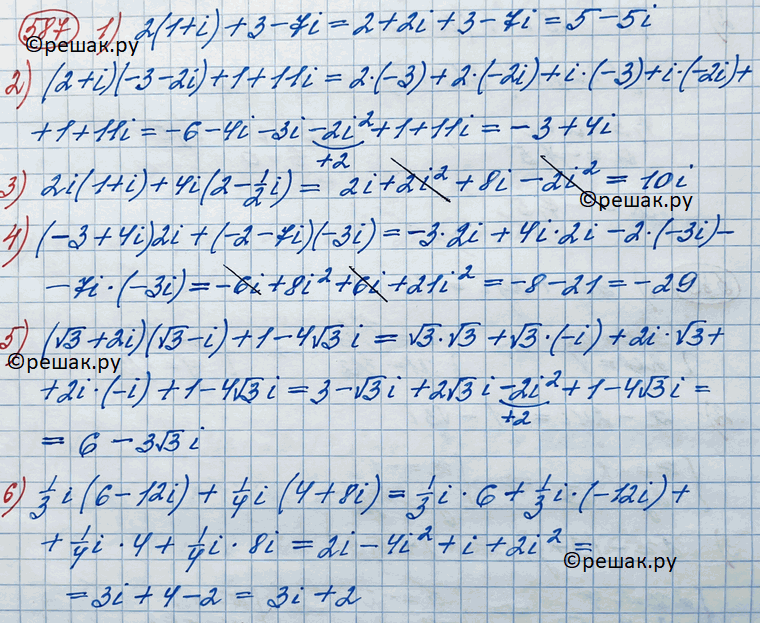 587 1) 2(1+i)+3-7i=2+2i+3-7i=5-5i
©решак.ру
2) (2+i)(-3-2i)+1+11i=2·(-3)+2·(-2i)+i·(-3)+i·(-2i)+
+1+11i=-6-4i-3i-2i²+1+11i=-3+4i
+2
3) 2i(1+i)+4i(2-1/2i)= 2i+2i²+8i-2i²=10i
©решак.ру
4) (-3+4i)2i+(-2-7i)(-3i)=-3·2i+4i·2i-2·(-3i)-
-7i·(-3i)=-6i+8i²+6i+21i²=-8-21=-29
5) (√3+2i)(√3-i)+1-4√3 i=√3·√3+√3·(-i)+2i·√3+
©решак.ру
+2i·(-i)+1-4√3i=3-√3i+2√3i-2i²+1-4√3i=
+2
=6-3√3i
6) 1/3i(6-12i)+1/4i(4+8i)=1/3i·6+1/3i·(-12i)+
+1/4i·4+1/4i·8i=2i-4i²+i+2i²=
©решак.ру
=3i+4-2=3i+2